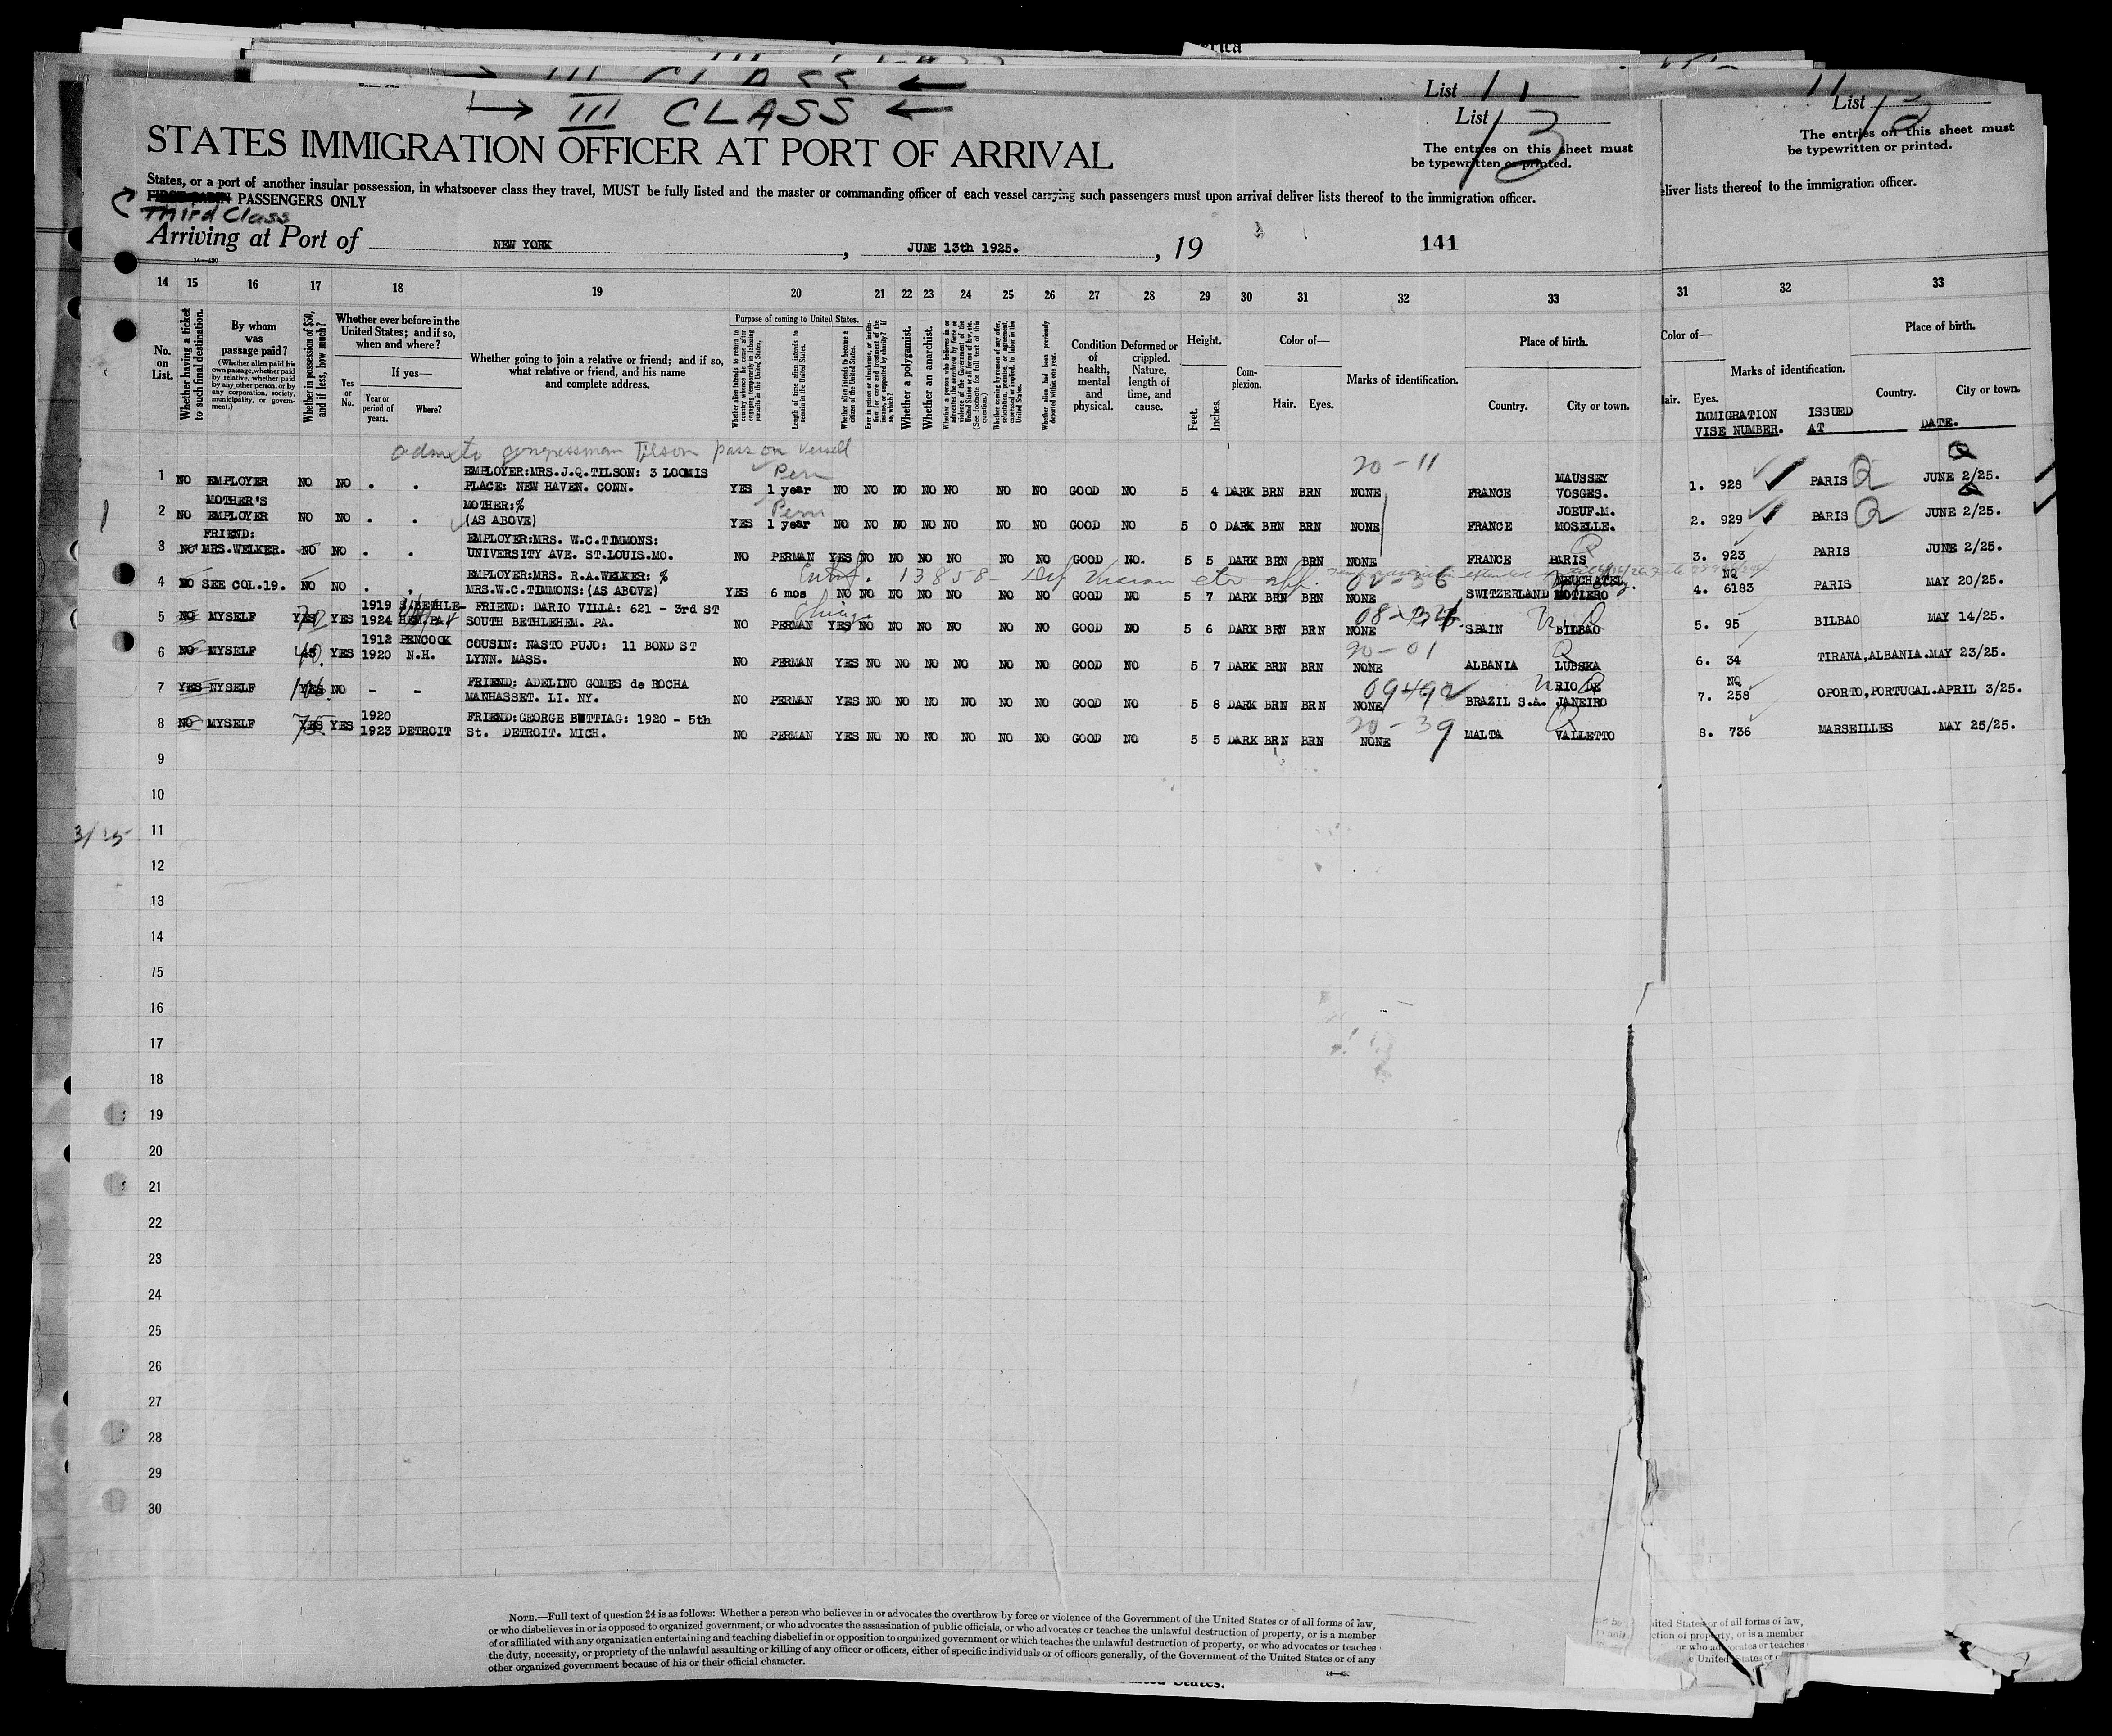 III CLASS
List 11
→ III CLASS ←
List 13
List 12
STATES IMMIGRATION OFFICER AT PORT OF ARRIVAL
The entries on this sheet must
be typewritten or printed.
The entries on this sheet must
be typewritten or printed.
States, or a port of another insular possession, in whatsoever class they travel, MUST be fully listed and the master or commanding officer of each vessel carrying such passengers must upon arrival deliver lists thereof to the immigration officer.
eliver lists thereof to the immigration officer.
PASSENGERS ONLY
Third Class
Arriving at Port of NEW YORK, JUNE 13th 1925., 19 141
14 15 16 17 18 19 20 21 22 23 24 25 26 27 28 29 30 31 32 33 31 32 33
No. on List.
Whether having a ticket to such final destination.
By whom was passage paid?
(Whether alien paid his own passage, whether paid by relative, whether paid by any other person, or by any corporation, society, municipality, or government.)
Whether in possession of $50, and if less, how much?
Whether ever before in the United States; and if so, when and where?
Yes or No.
If yes—
Year or period of years.
Where?
Whether going to join a relative or friend; and if so, what relative or friend, and his name and complete address.
Purpose of coming to United States.
Whether alien intends to return to country whence he came after engaging temporarily in laboring pursuits in the United States.
Length of time alien intends to remain in the United States.
Whether alien intends to become a citizen of the United States.
Ever in prison or almshouse, or institution for care and treatment of the insane, or supported by charity? If so, which?
Whether a polygamist.
Whether an anarchist.
Whether a person who believes in or advocates the overthrow by force or violence of the Government of the United States or all forms of law, etc. (See footnote for full text of this question.)
Whether coming by reason of any offer, solicitation, promise, or agreement, expressed or implied, to labor in the United States.
Whether alien had been previously deported within one year.
Condition of health, mental and physical.
Deformed or crippled. Nature, length of time, and cause.
Height.
Feet. Inches.
Complexion.
Color of—
Hair. Eyes.
Marks of identification.
Place of birth.
Country. City or town.
Color of—
Hair. Eyes.
Marks of identification.
Place of birth.
Country. City or town.
IMMIGRATION VISE NUMBER. ISSUED AT DATE.
congressman Tilson pass on vessell
1 NO EMPLOYER NO NO . . EMPLOYER:MRS.J.Q.TILSON: 3 LOOMIS PLACE: NEW HAVEN. CONN. YES Perm 1 year NO NO NO NO NO NO NO GOOD NO 5 4 DARK BRN BRN 20-11 NONE FRANCE MAUSSEY VOSGES. 1. 928 PARIS Q JUNE 2/25.
2 NO MOTHER'S EMPLOYER NO NO . . MOTHER:% (AS ABOVE) YES Perm 1 year NO NO NO NO NO NO NO GOOD NO 5 0 DARK BRN BRN NONE FRANCE JOEUF.M. MOSELLE. 2. 929 PARIS Q JUNE 2/25.
3 NO FRIEND: MRS.WELKER. NO NO . . EMPLOYER:MRS. W.C.TIMMONS: UNIVERSITY AVE. ST.LOUIS.MO. NO PERMAN YES NO NO NO NO NO NO GOOD NO. 5 5 DARK BRN BRN NONE FRANCE PARIS 3. 923 PARIS JUNE 2/25.
4 NO SEE COL.19. NO NO . . EMPLOYER:MRS. R.A.WELKER: % MRS.W.C.TIMMONS:(AS ABOVE) YES 6 mos NO NO NO NO NO NO NO GOOD NO 5 7 DARK BRN BRN NONE SWITZERLAND NEUCHATEL MOTIERO 4. NQ 6183 PARIS MAY 20/25.
5 NO MYSELF YES 70 YES 1919 1924 S.BETHLE- HEM.PA. FRIEND: DARIO VILLA: 621 - 3rd ST SOUTH BETHLEHEM. PA. NO PERMAN YES NO NO NO NO NO NO GOOD NO 5 6 DARK BRN BRN NONE SPAIN BILBAO 5. 95 BILBAO MAY 14/25.
6 NO MYSELF 40. YES 1912 1920 PENCOOK N.H. COUSIN: NASTO PUJO: 11 BOND ST LYNN. MASS. NO PERMAN YES NO NO NO NO NO NO GOOD NO 5 7 DARK BRN BRN 20-01 NONE ALBANIA LUBSKA 6. 34 TIRANA,ALBANIA.MAY 23/25.
7 YES NYSELF YES NO - - FRIEND: ADELINO GOMES de ROCHA MANHASSET. LI. NY. NO PERMAN YES NO NO NO NO NO NO GOOD NO 5 8 DARK BRN BRN NONE BRAZIL S.A. RIO DE JANEIRO 7. NQ 258 OPORTO,PORTUGAL.APRIL 3/25.
8 NO MYSELF YES 75. YES 1920 1923 DETROIT FRIEND:GEORGE BUTTIAG: 1920 - 5th St. DETROIT. MICH. NO PERMAN YES NO NO NO NO NO NO GOOD NO 5 5 DARK BRN BRN 20-39 NONE MALTA VALLETTO 8. 736 MARSEILLES MAY 25/25.
9
10
11
12
13
14
15
16
17
18
19
20
21
22
23
24
25
26
27
28
29
30
NOTE.—Full text of question 24 is as follows: Whether a person who believes in or advocates the overthrow by force or violence of the Government of the United States or of all forms of law,
or who disbelieves in or is opposed to organized government, or who advocates the assassination of public officials, or who advocates or teaches the unlawful destruction of property, or is a member
of or affiliated with any organization entertaining and teaching disbelief in or opposition to organized government or which teaches the unlawful destruction of property, or who advocates or teaches
the duty, necessity, or propriety of the unlawful assaulting or killing of any officer or officers, either of specific individuals or of officers generally, of the Government of the United States or of any
other organized government because of his or their official character.